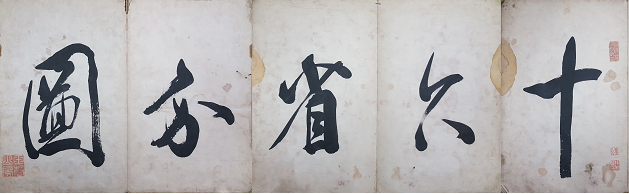 十六省分圖